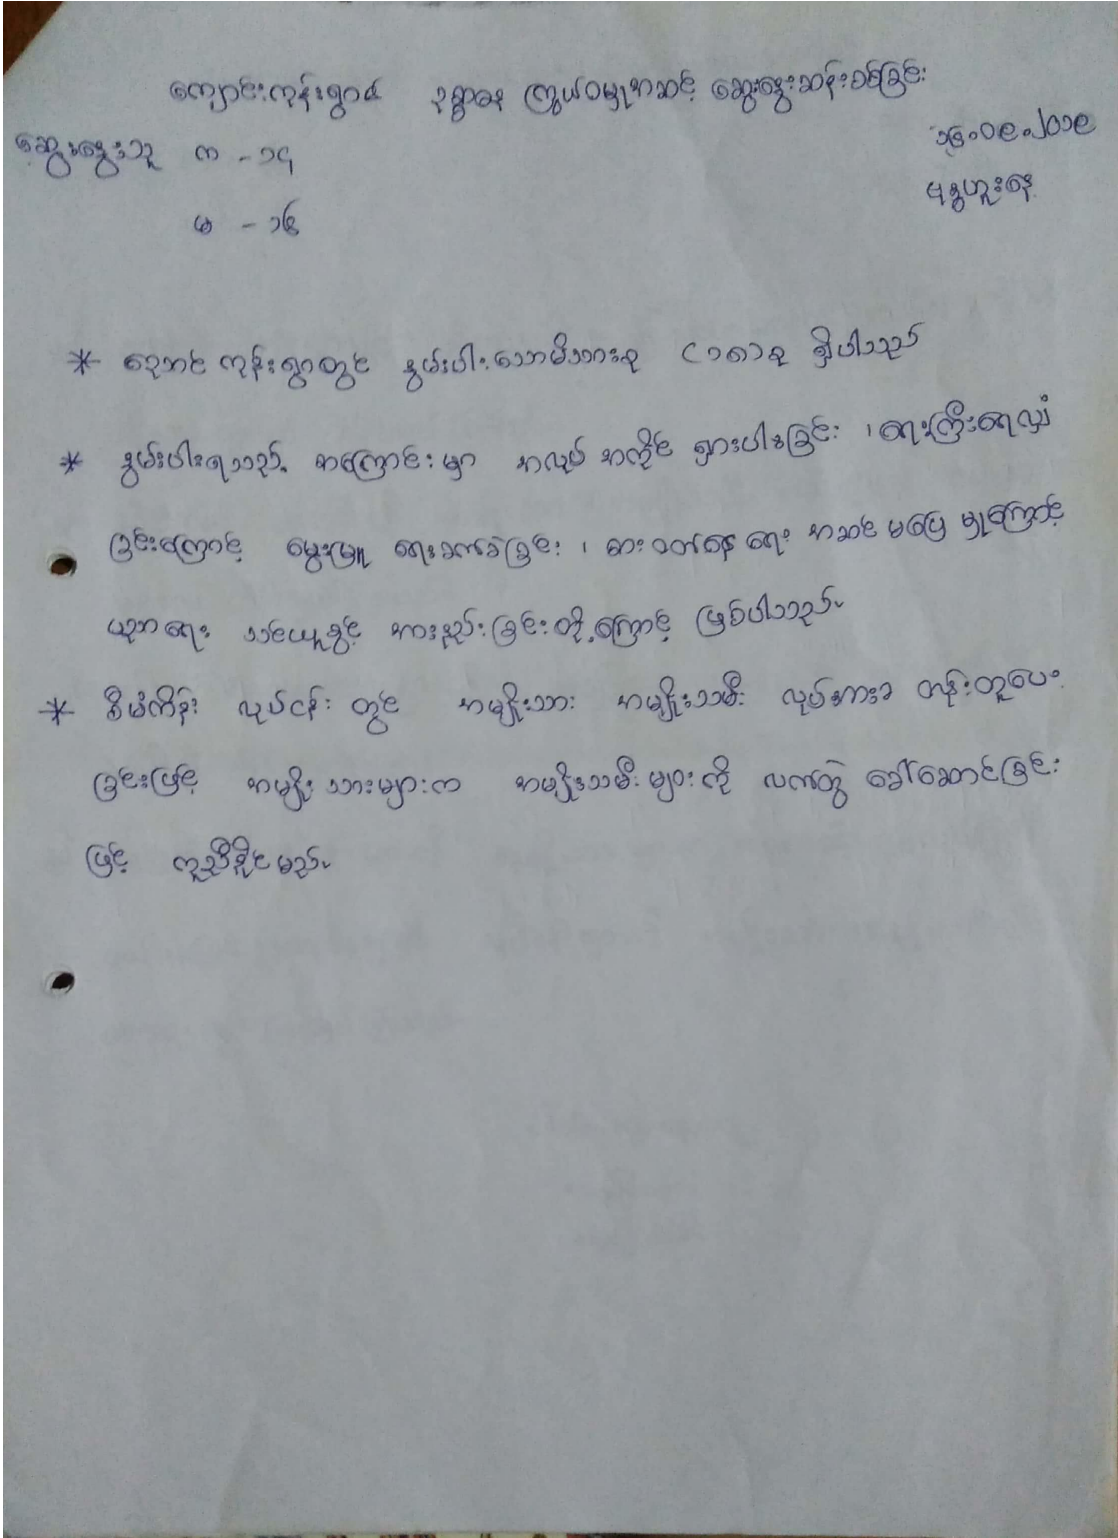 ကျောင်းကုန်းရွာ၏ ဥစ္စာဓန ကြွယ်ဝမှုအဆင့် ဆွေးနွေးဆန်းစစ်ခြင်း
ဆွေးနွေးသူ ကျ - ၁၄
၁၆.၀၉.၂၀၁၉
မ - ၁၆
မုန္ဒဟူးနေ့
* ကျောင်းကုန်းရွာတွင် နွမ်းပါးသောမိသားစု ၇၁ စု ရှိပါသည်
* နွမ်းပါးရသည့် အကြောင်းမှာ အလုပ် အကိုင် ရှားပါးခြင်း ၊ ရေကြီးရေလျှံ
ခြင်းကြောင့် မွေးမြူ ရေးခက်ခဲခြင်း ၊ စားဝတ်နေ ရေး အဆင် မပြေ မှုကြောင့်
ပညာရေး သင်ယူခွင့် အားနည်းခြင်းတို့ကြောင့် ဖြစ်ပါသည်။
* စီမံကိန်း လုပ်ငန်း တွင် အမျိုးသား အမျိုးသမီး လုပ်အားခ တန်းတူပေး
ခြင်းဖြင့် အမျိုးသားများက အမျိုးသမီးများကို လက်တွဲ ခေါ်ဆောင်ခြင်း
ဖြင့် ကူညီနိုင်မည်။